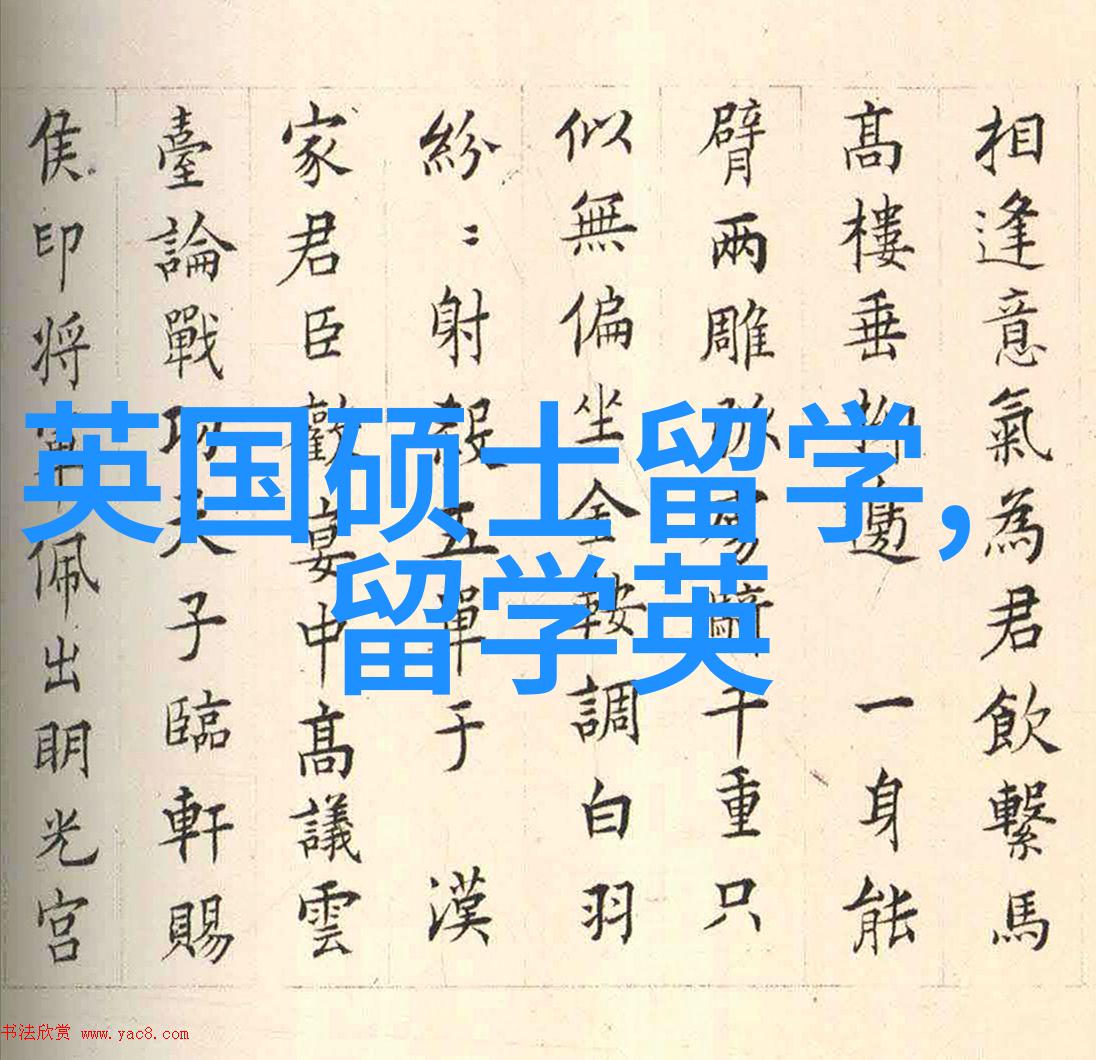 相逢意氣為君飲繫馬
髙樓垂柳邉 一身能
臂兩雕弧虜騎千重只
似無偏坐金鞍調白羽
紛〻射殺五單于 漢
家君臣歡宴中髙議雲
臺論戰功天子臨軒賜
侯印将軍佩出明光宮
英国硕士留学,
留学英
书法欣赏 www.yac8.com